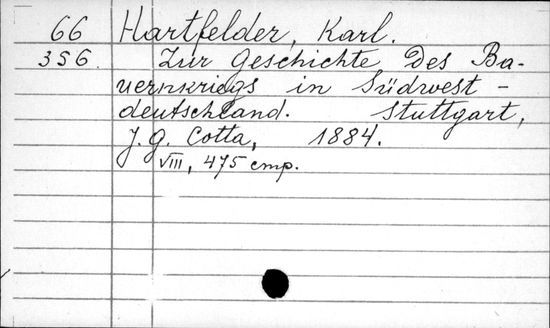 66 Hartfelder, Karl.
356. Zur Geschichte Des Ba-
uernkriegs in Südwest-
deutschland. Stuttgart,
J. G. Cotta, 1884.
VIII, 475 стр.